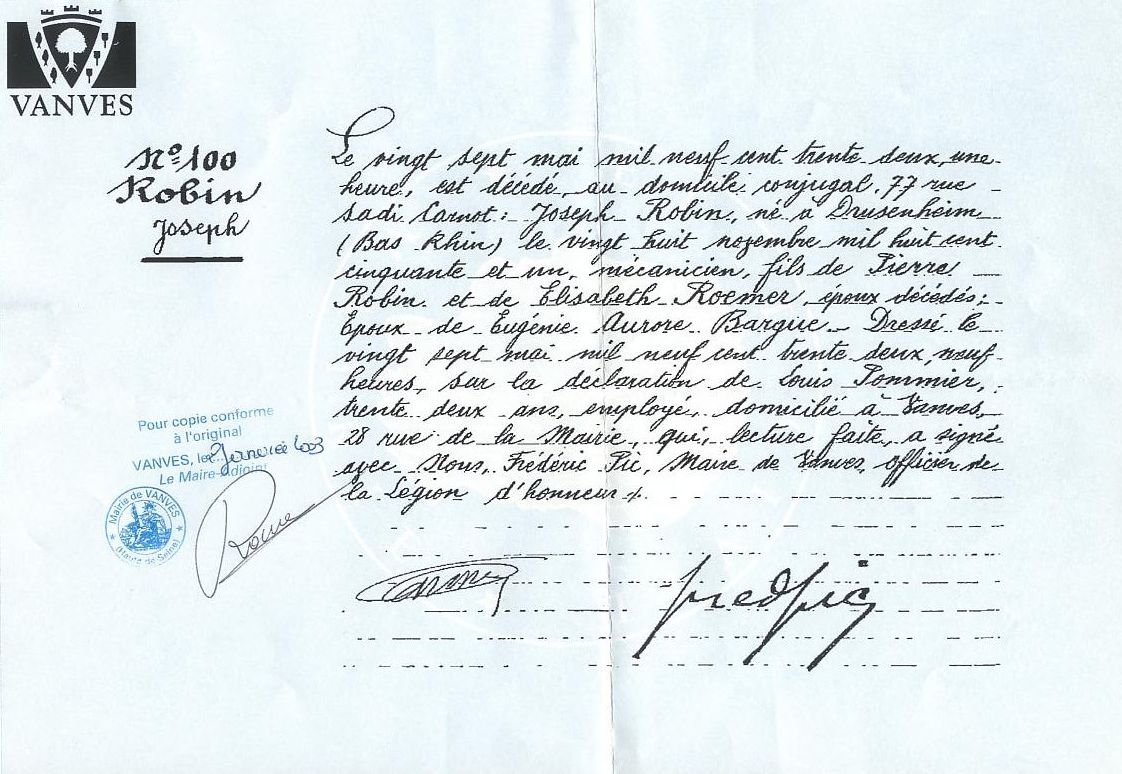 VANVES
Nº 100
Robin
Joseph
Le vingt sept mai mil neuf cent trente deux, une
heure, est décédé, au domicile conjugal, 77 rue
Sadi Carnot: Joseph Robin, né à Drusenheim
(Bas Rhin) le vingt huit novembre mil huit cent
cinquante et un, mécanicien, fils de Pierre
Robin et de Elisabeth Roemer, époux décédés;
Epoux de Eugénie Aurore Bargue. Dressé le
vingt sept mai mil neuf cent trente deux, neuf
heures, sur la déclaration de Louis Pommier,
trente deux ans, employé, domicilié à Vanves,
28 rue de la Mairie, qui, lecture faite, a signé
avec Nous, Frédéric Pic, Maire de Vanves, officier de
la Légion d'honneur
Pour copie conforme
à l'original
VANVES, le 2 Janvier
Le Maire-adjoint
Mairie de VANVES
(Hauts de Seine)
fredpic